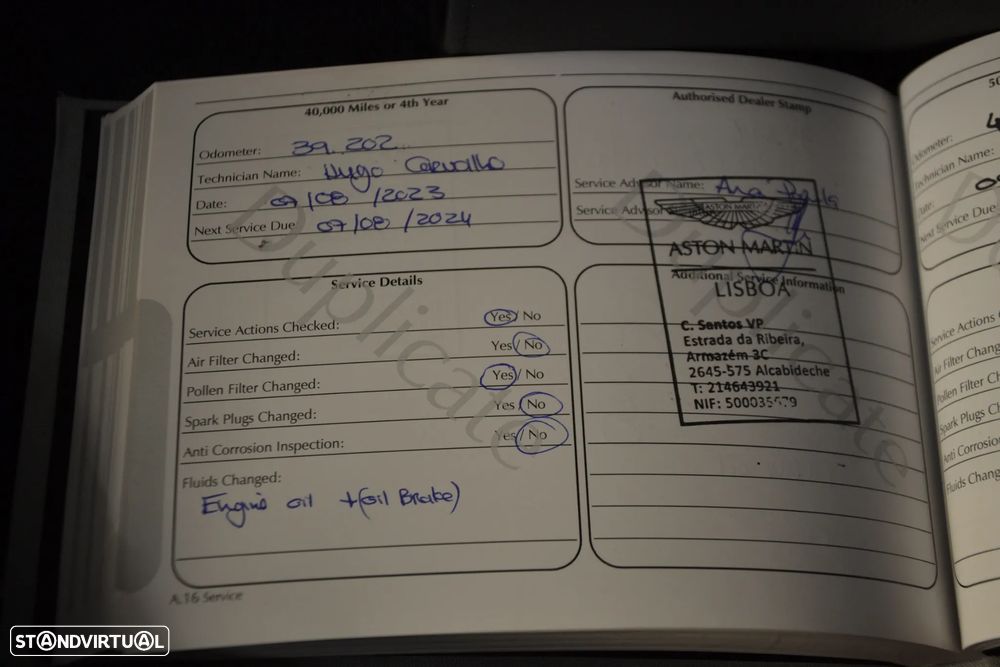 40,000 Miles or 4th Year
Odometer: 39.202
Technician Name: Hugo Carvalho
Date: 07/08/2023
Next Service Due 07/08/2024
Authorised Dealer Stamp
Service Advisor Name: Ana Paula
Service Advisor
ASTON MARTIN
ASTON MARTIN
LISBOA
C. Santos VP
Estrada da Ribeira,
Armazém 3C
2645-575 Alcabideche
T: 214643921
NIF:
Service Details
Service Actions Checked: Yes / No
Air Filter Changed: Yes / No
Pollen Filter Changed: Yes / No
Spark Plugs Changed: Yes / No
Anti Corrosion Inspection: Yes / No
Fluids Changed:
Engine oil + (oil Brake)
Additional Service Information
Duplicate
Duplicate
A.16 Service
50
Odometer: 4
Technician Name:
Date:
Next Service Due
Service Actions
Air Filter Changed
Pollen Filter Ch
Spark Plugs Ch
Anti Corrosion
Fluids Chang
STANDVIRTUAL